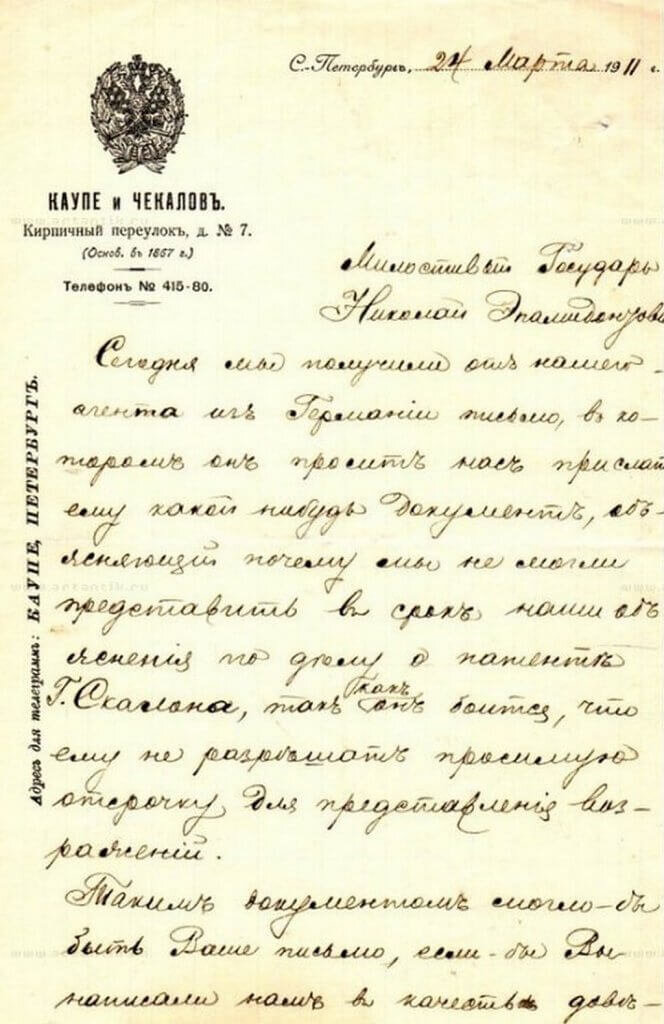 С.-Петербургъ, 24 Марта 1911 г.
КАУПЕ и ЧЕКАЛОВЪ.
Кирпичный переулокъ, д. № 7.
(Основ. въ 1867 г.)
Телефонъ № 415-80.
Адресъ для телеграммъ: КАУПЕ, ПЕТЕРБУРГЪ.
Милостивый Государь
Николай
Сегодня мы получили отъ нашего
агента изъ Германіи письмо, въ ко-
торомъ онъ проситъ насъ прислать
ему какой нибудь документъ, объ-
ясняющій почему мы не могли
представить въ срокъ наши объ
ясненія по дѣлу о патентѣ
Г. Скалона, такъ какъ онъ боится, что
ему не разрѣшатъ просимую
отсрочку для представленія воз-
раженій.
Такимъ документомъ могло-бы
быть Ваше письмо, если-бы Вы
написали намъ въ качествѣ довѣ-
www.artantik.ru